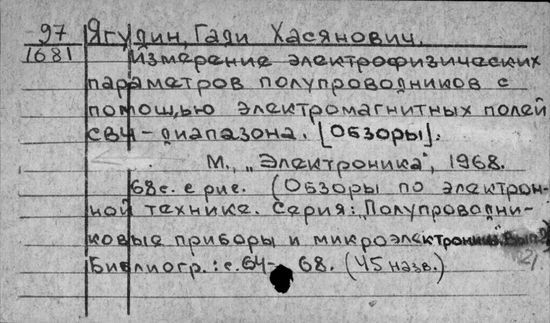 97 Ягудин, Гади Хасянович.
1681 Измерение электрофизических
параметров полупроводников с
помощью электромагнитных полей
СВЧ-диапазона. [Обзоры].
М., "Электроника", 1968.
68с. с рис. (Обзоры по электрон-
ной технике. Серия: "Полупроводни-
ковые приборы и микроэлектроника". Вып.
Библиогр.: с.64-68. (45 назв.)